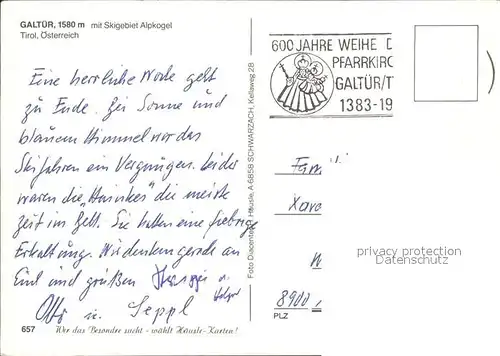 GALTÜR, 1580 m mit Skigebiet Alpkogel
Tirol, Österreich
600 JAHRE WEIHE D
PFARRKIRC
GALTÜR/T
1383-19
Eine herrliche Woche geht
zu Ende. Bei Sonne und
blauem Himmel war das
Skifahren ein Vergnügen. Leider
waren die die meiste
Zeit im Bett. Sie hatten eine fiebrige
Erkaltung. Wir denken gerade an
Euch und grüßen
Otto u. Seppl
Fam
Xave
W
8900
PLZ
privacy protection
watermark
Foto Discerta A. Häusle, A 6858 SCHWARZACH, Kellaweg 28
657 Wer das Besondre sucht - wählt Häusle-Karten!